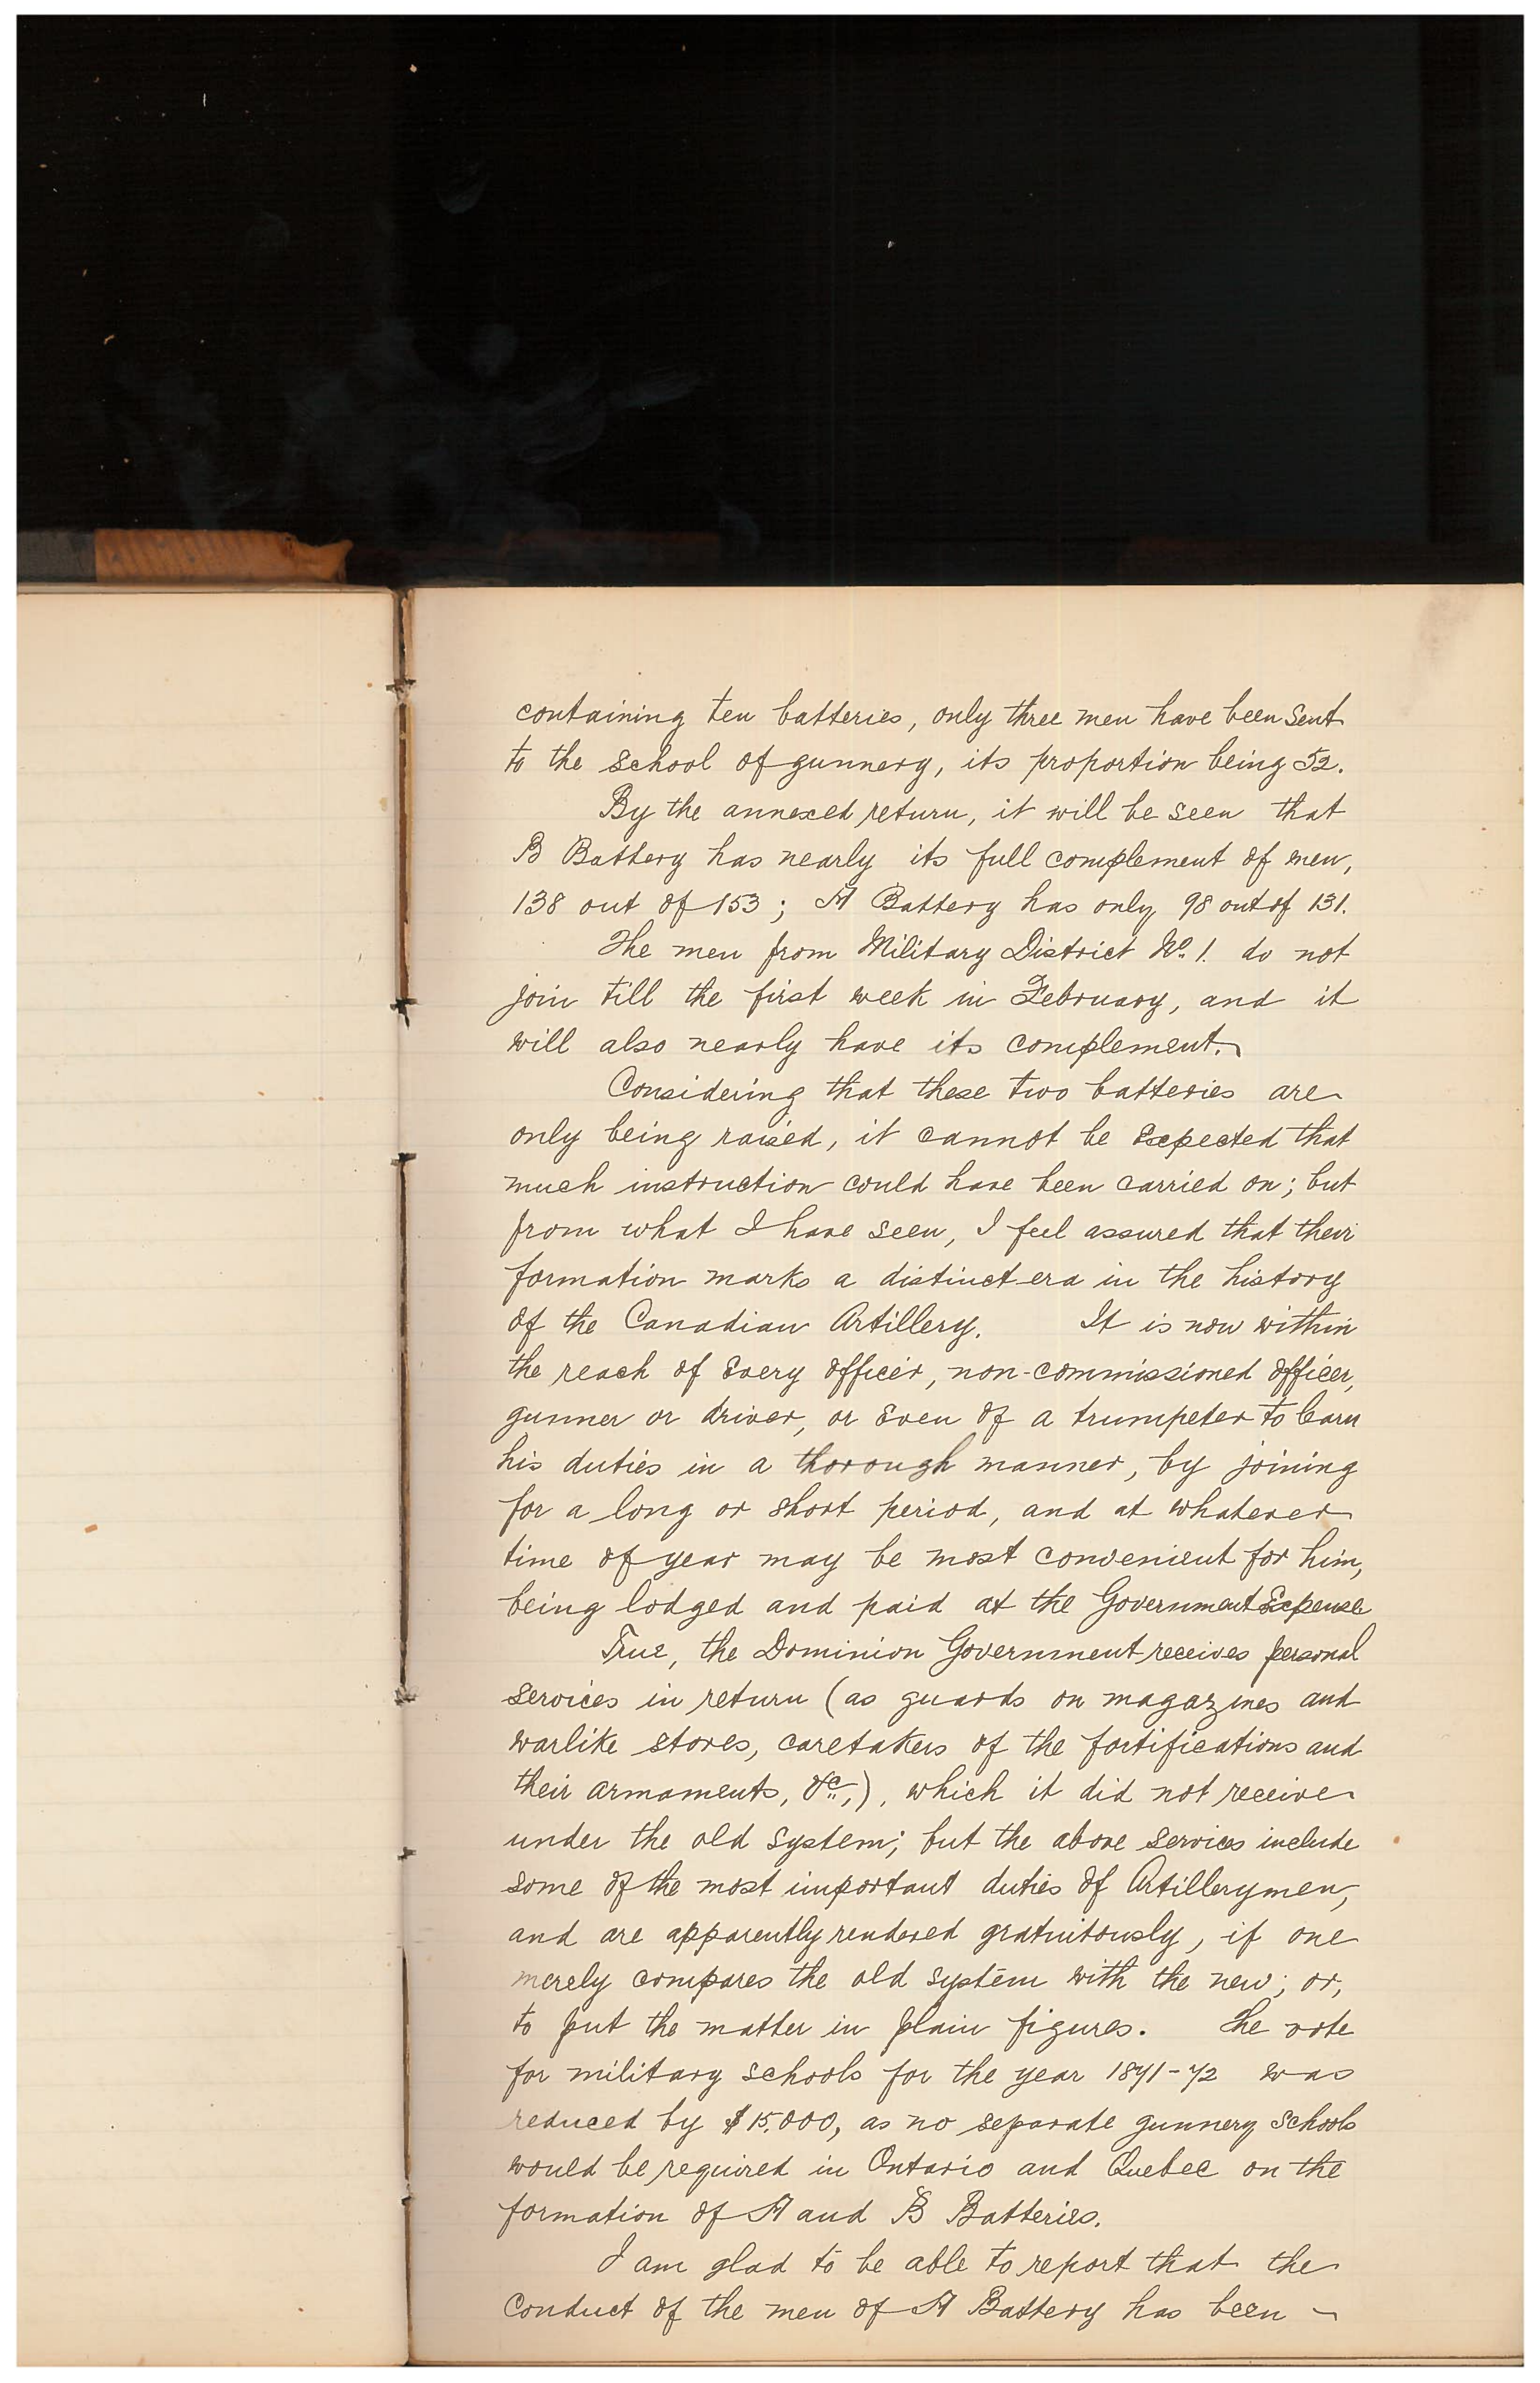 containing ten batteries, only three men have been sent
to the School of gunnery, its proportion being 52.
By the annexed return, it will be seen that
B Battery has nearly its full complement of men,
138 out of 153; A Battery has only 98 out of 131.
The men from Military District No. 1. do not
join till the first week in February, and it
will also nearly have its complement.
Considering that these two batteries are
only being raised, it cannot be Expected that
much instruction could have been carried on; but
from what I have seen, I feel assured that their
formation marks a distinct era in the history
of the Canadian Artillery. It is now within
the reach of Every officer, non-commissioned officer,
gunner or driver, or Even of a trumpeter to learn
his duties in a thorough manner, by joining
for a long or short period, and at whatever
time of year may be most convenient for him,
being lodged and paid at the Government Expense
True, the Dominion Government receives personal
services in return (as guards on magazines and
warlike stores, caretakers of the fortifications and
their armaments, &c.,), which it did not receive
under the old system; but the above services include
some of the most important duties of Artillerymen,
and are apparently rendered gratuitously, if one
merely compares the old system with the new; or,
to put the matter in plain figures. The vote
for military schools for the year 1871-72 was
reduced by $15.000, as no separate gunnery schools
would be required in Ontario and Quebec on the
formation of A and B Batteries.
I am glad to be able to report that the
conduct of the men of A Battery has been